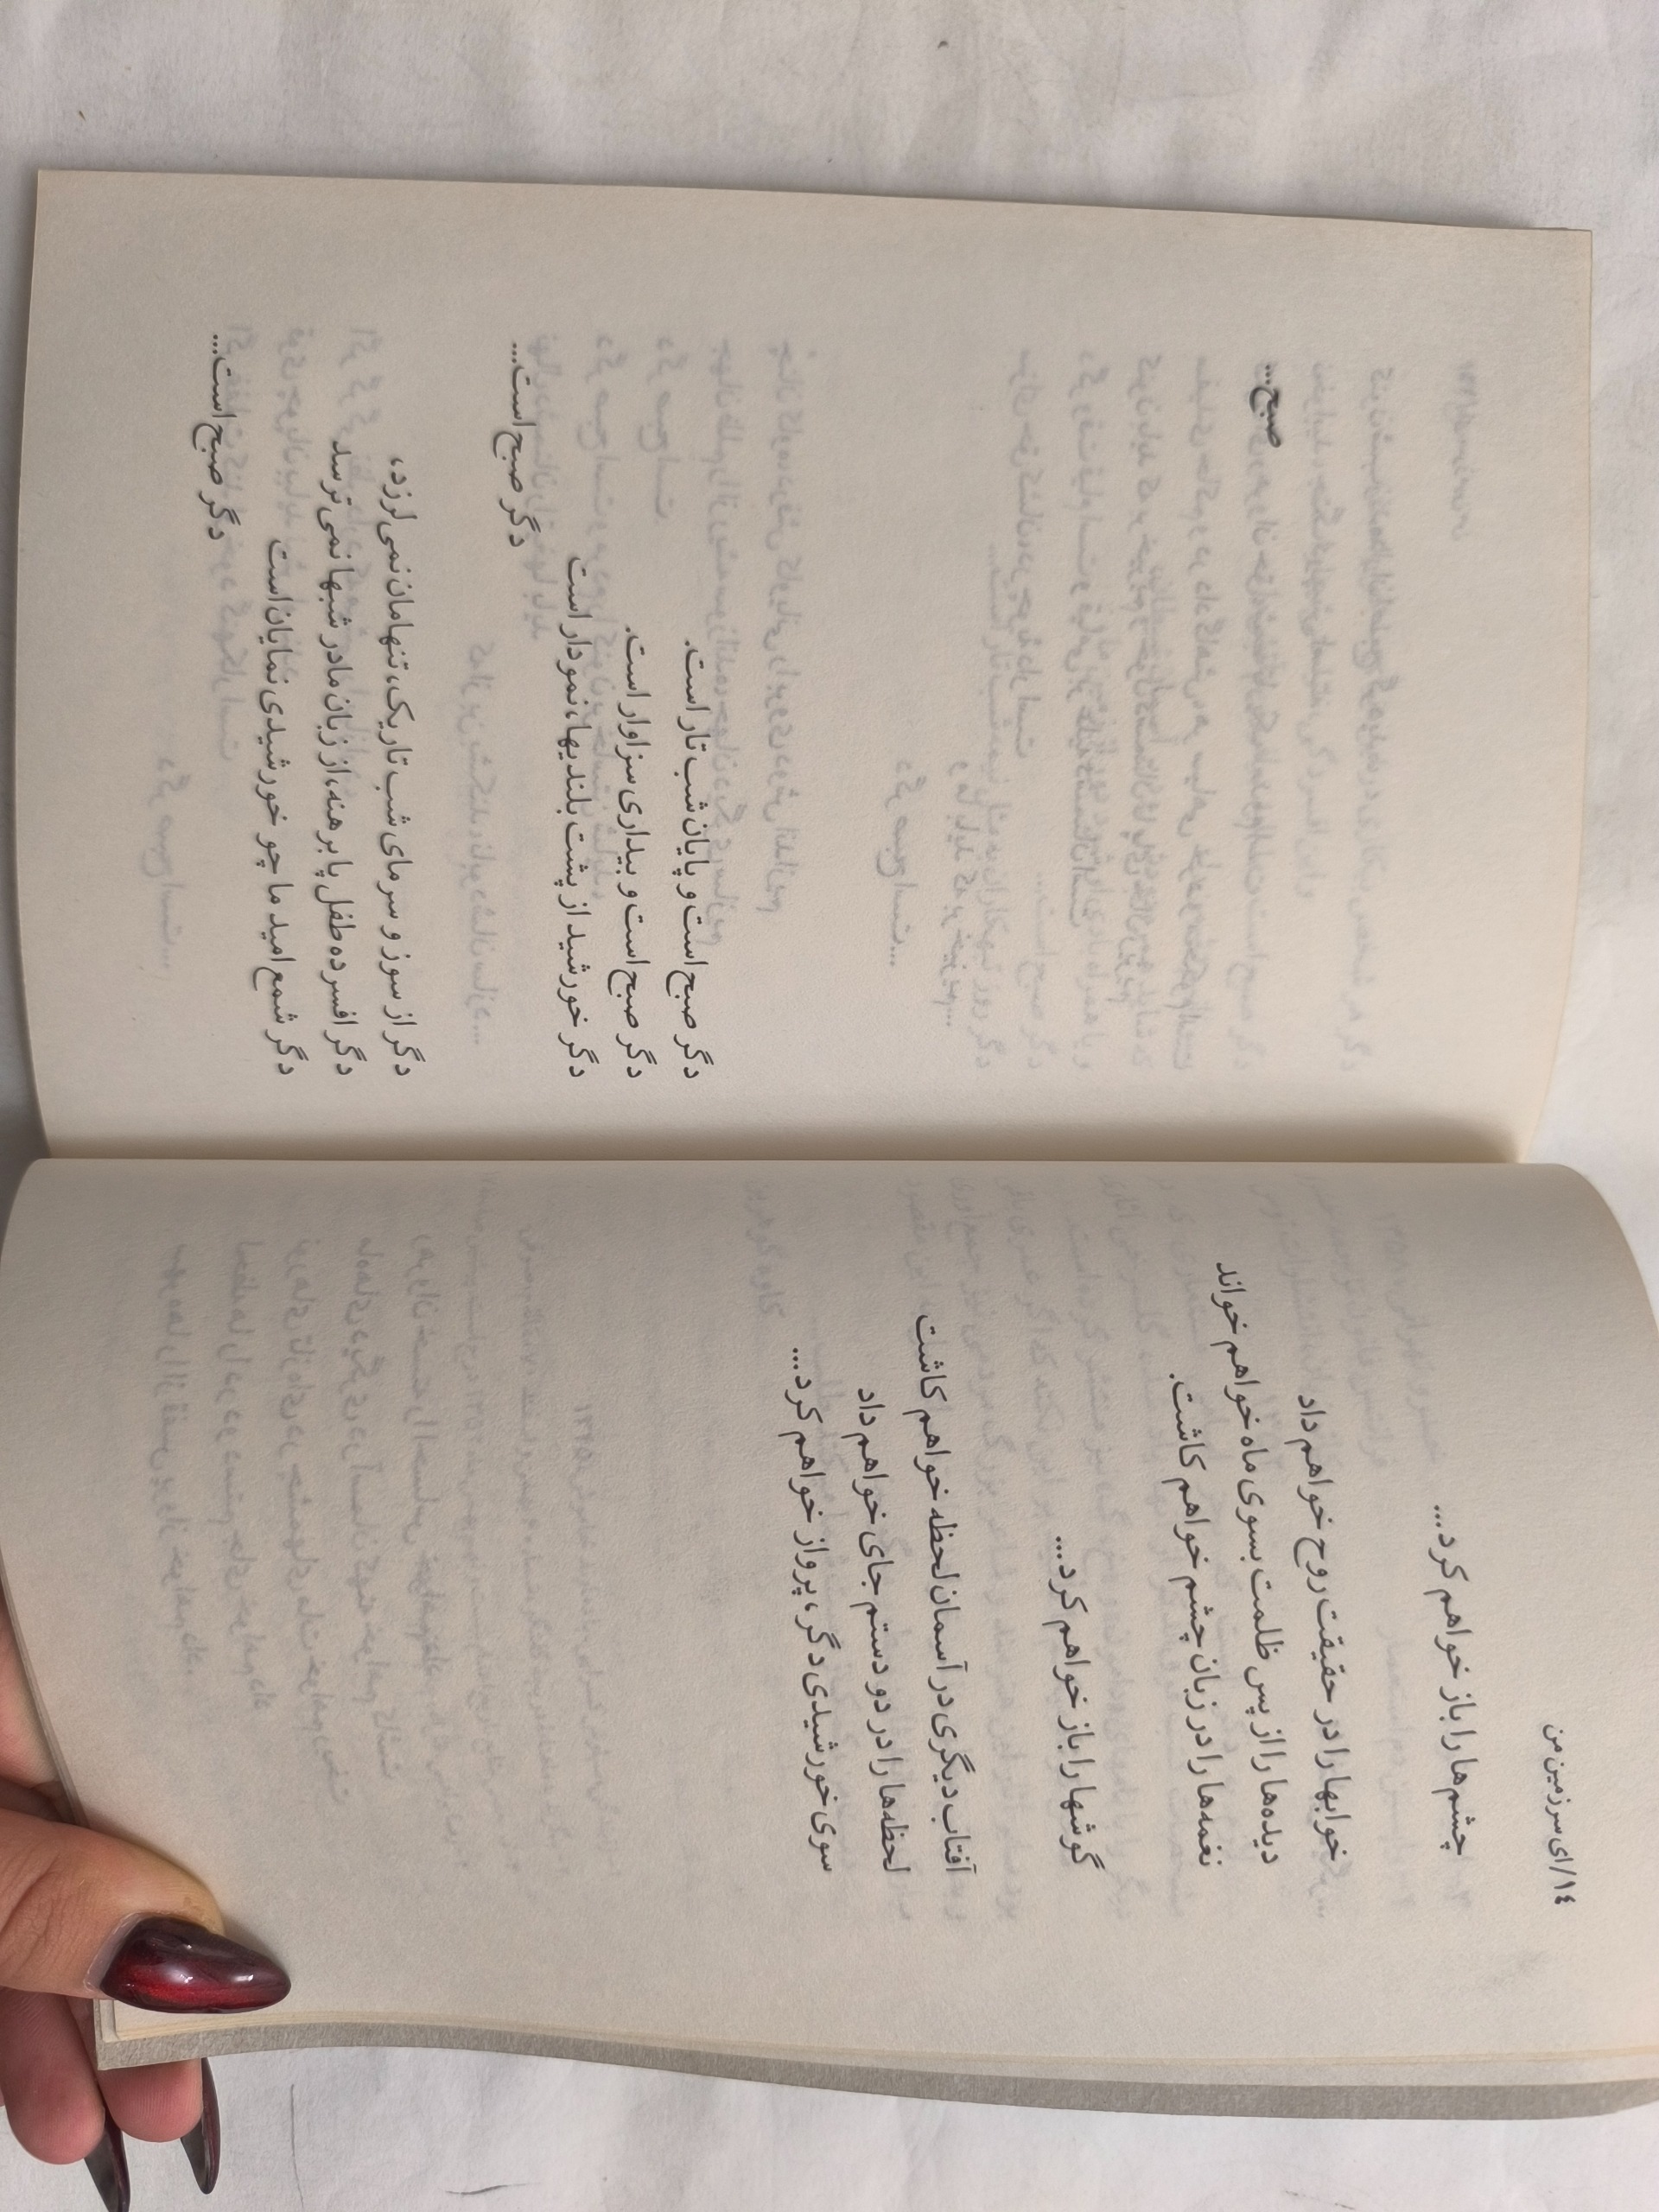 ١٤/ای سرزمین من
چشم‌ها را باز خواهم کرد...
خوابها را در حقیقت روح خواهم داد
دیده‌ها را از پس ظلمت بسوی ماه خواهم خواند
نغمه‌ها را در زبان چشم خواهم کاشت.
گوشها را باز خواهم کرد...
آفتاب دیگری در آسمان لحظه خواهم کاشت
لحظه‌ها را در دو دستم جای خواهم داد
سوی خورشیدی دگر، پرواز خواهم کرد...
صبح...
دگر صبح است و پایان شب تار است.
دگر صبح است و بیداری سزاوار است.
دگر خورشید از پشت بلندیها، نمودار است
دگر صبح است...
دگر از سوز و سرمای شب تاریک، تنهامان نمی‌لرزد،
دگر افسرده طفل پابرهنه، از زبان مادر شبها نمی‌ترسد
دگر شمع امید ما چو خورشیدی نمایان است
دگر صبح است...